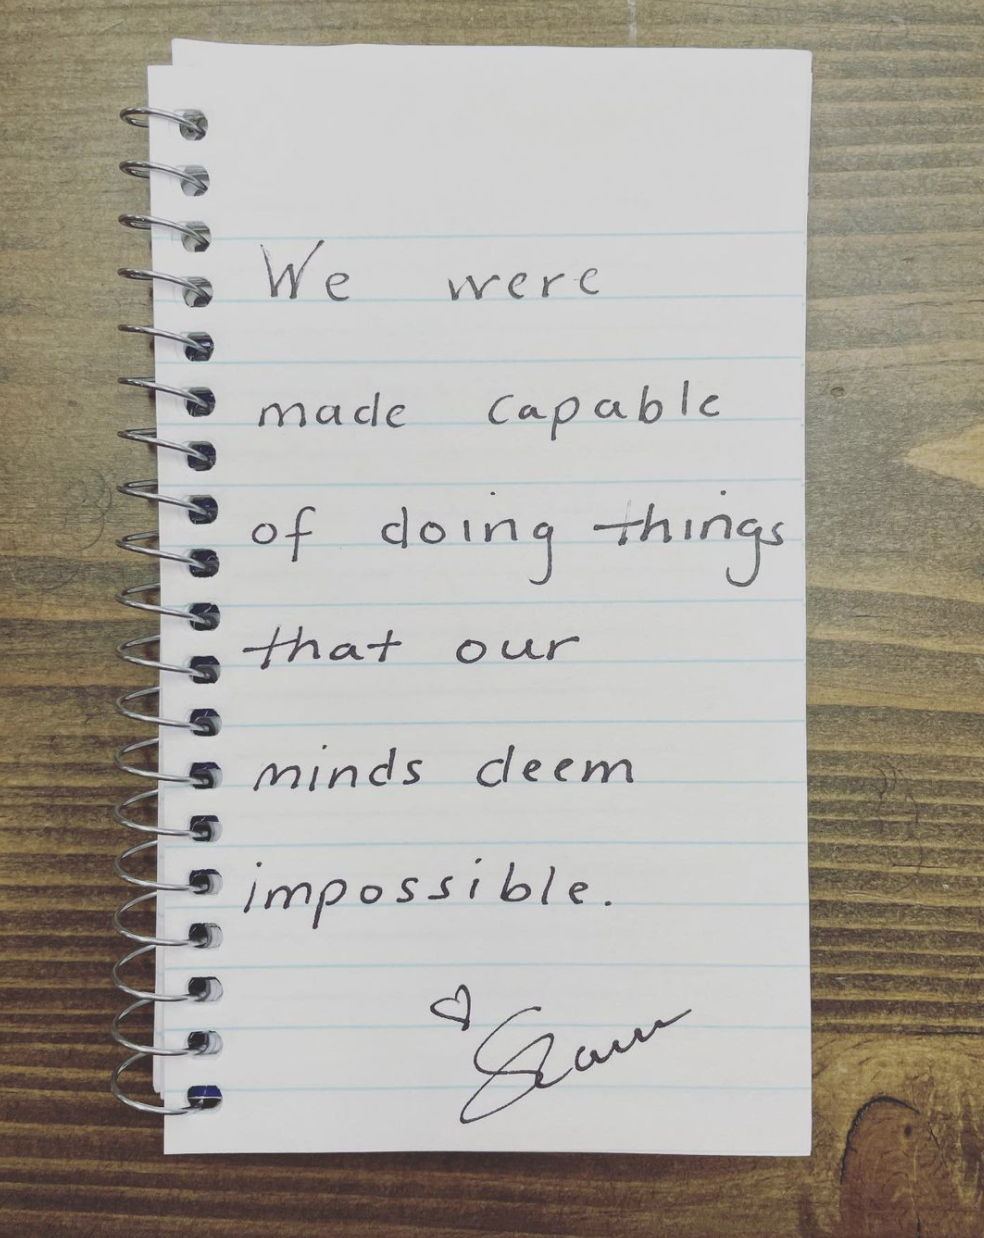 We were
made capable
of doing things
that our
minds deem
impossible.